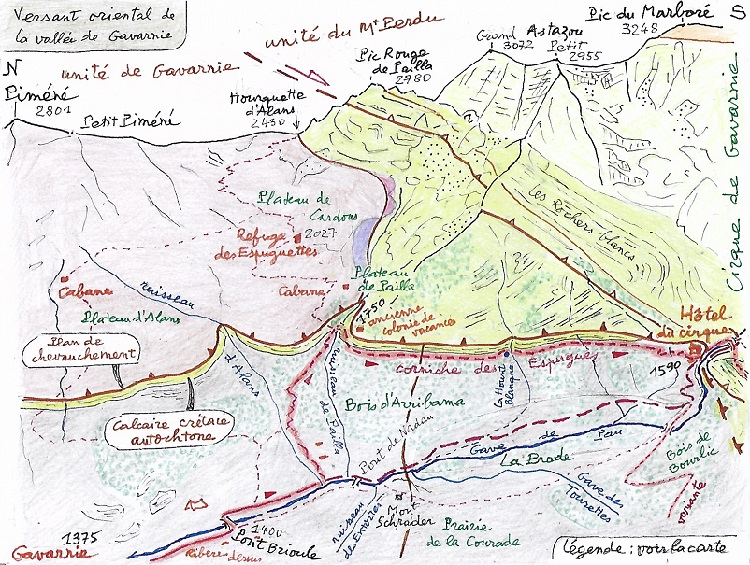 Versant oriental de
la vallée de Gavarnie
unité du Mt Perdu
unité de Gavarnie
N
Piméné
2801
Petit Piméné
Hourquette
d'Alans
2430
Pic Rouge
de Pailla
2780
Grand
3072
Astazou
Petit
2955
Pic du Marboré
3248
S
Cirque de Gavarnie
Les Rochers blancs
Plateau de
Cardous
2027
Refuge
des Espuguettes
Cabane
Cabane
Plateau
de Pailla
1750
ancienne
colonie de
vacance
ruisseau
d'Alans
Plateau d'Alans
Plan de
chevauchement
Calcaire crétacé
autochtone
ruisseau
de Pailla
corniche des Espugues
La Hount
Blanque
Hôtel
du cirque
1590
Bois d'Arribama
Pont de Nadau
Gave de Pau
La Brade
Gave des
Tourettes
Bois de
Bourlic
variante
Mont
Schrader
Prairie
de la Courade
ruisseau
1400
Pont Brioule
1375
Gavarnie
légende : voir la carte